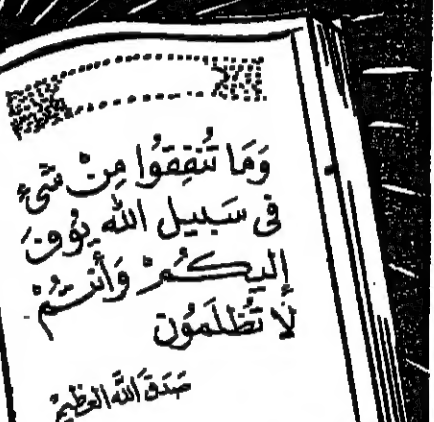 وَمَا تُنفِقُوا مِنْ شَيْءٍ
فِى سَبِيلِ اللهِ يُوَفَّ
إِلَيْكُمْ وَأَنتُمْ
لَا تُظْلَمُون
صَدَقَ اللهُ العَظِيمُ